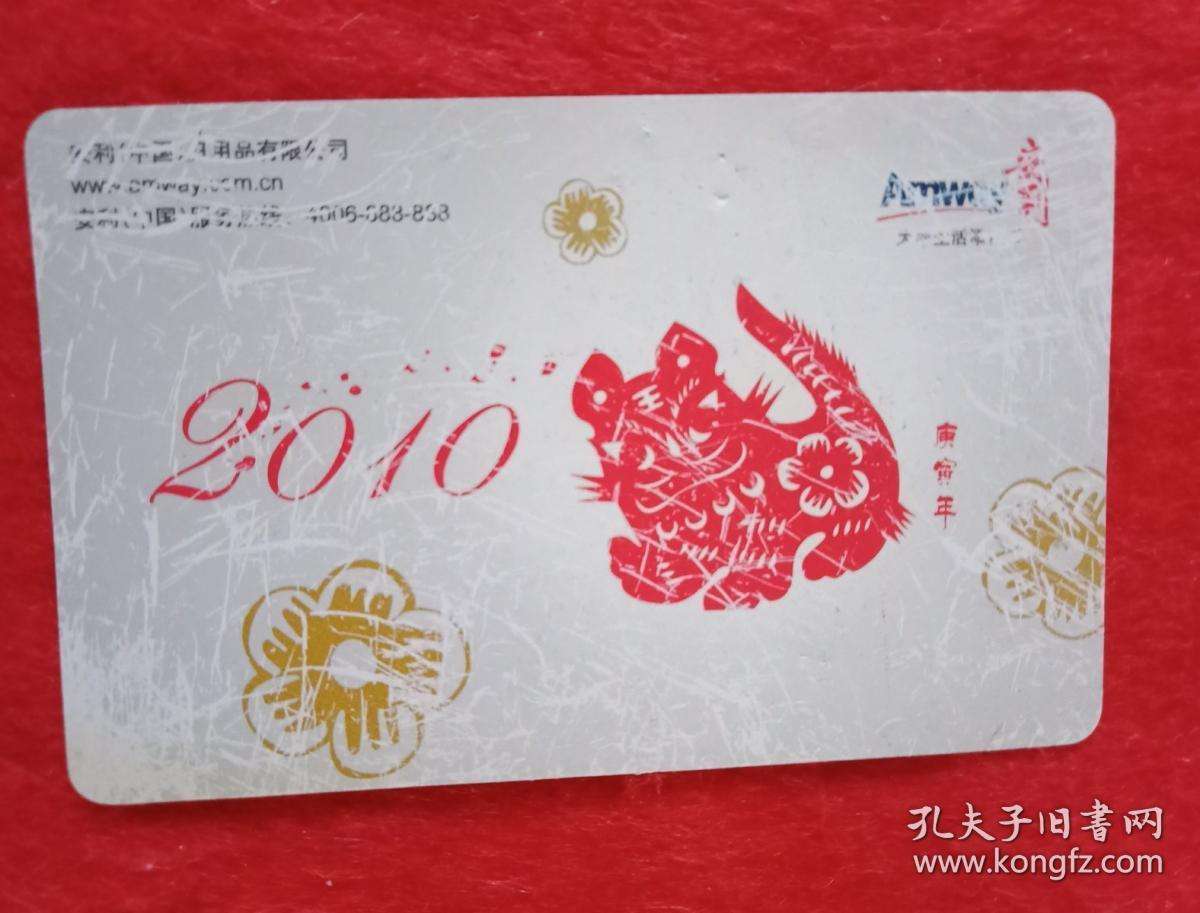 安利(中国)日用品有限公司
www.amway.com.cn
安利(中国)服务热线:
Amway 安利
2010
庚寅年
孔夫子旧書网
www.kongfz.com